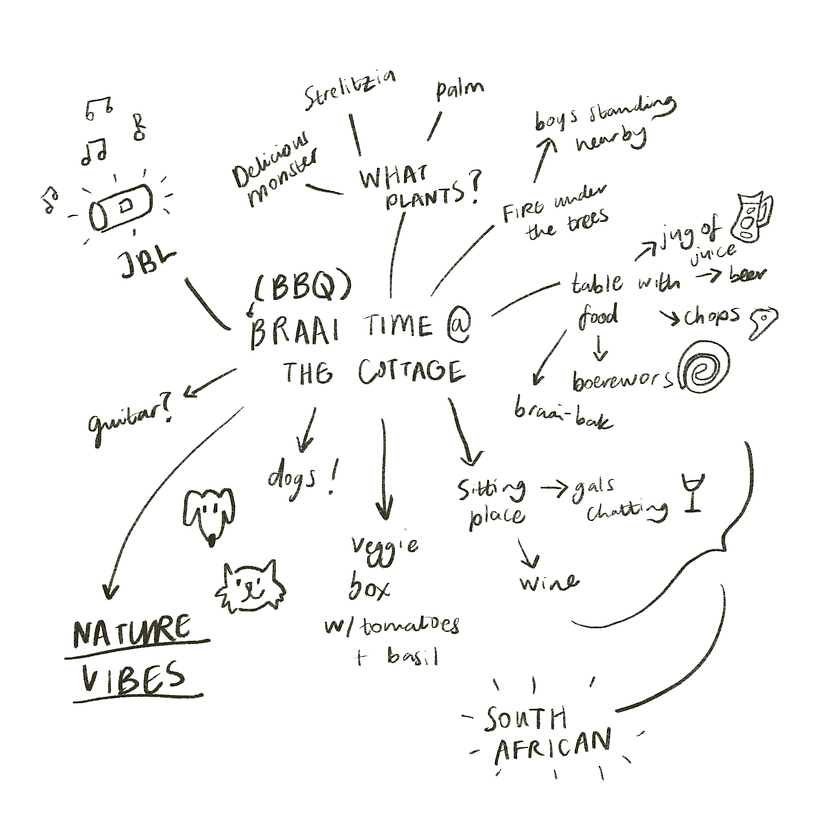 Strelitzia
Palm
Delicious
monster
WHAT
PLANTS?
boys standing
nearby
FIRE under
the trees
JBL
jug of
juice
table with
food
beer
chops
boerewors
braai-bak
(BBQ)
BRAAI TIME @
THE COTTAGE
guitar?
dogs!
Sitting
place
gals
chatting
wine
veggie
box
w/tomatoes
+ basil
NATURE
VIBES
SOUTH
AFRICAN